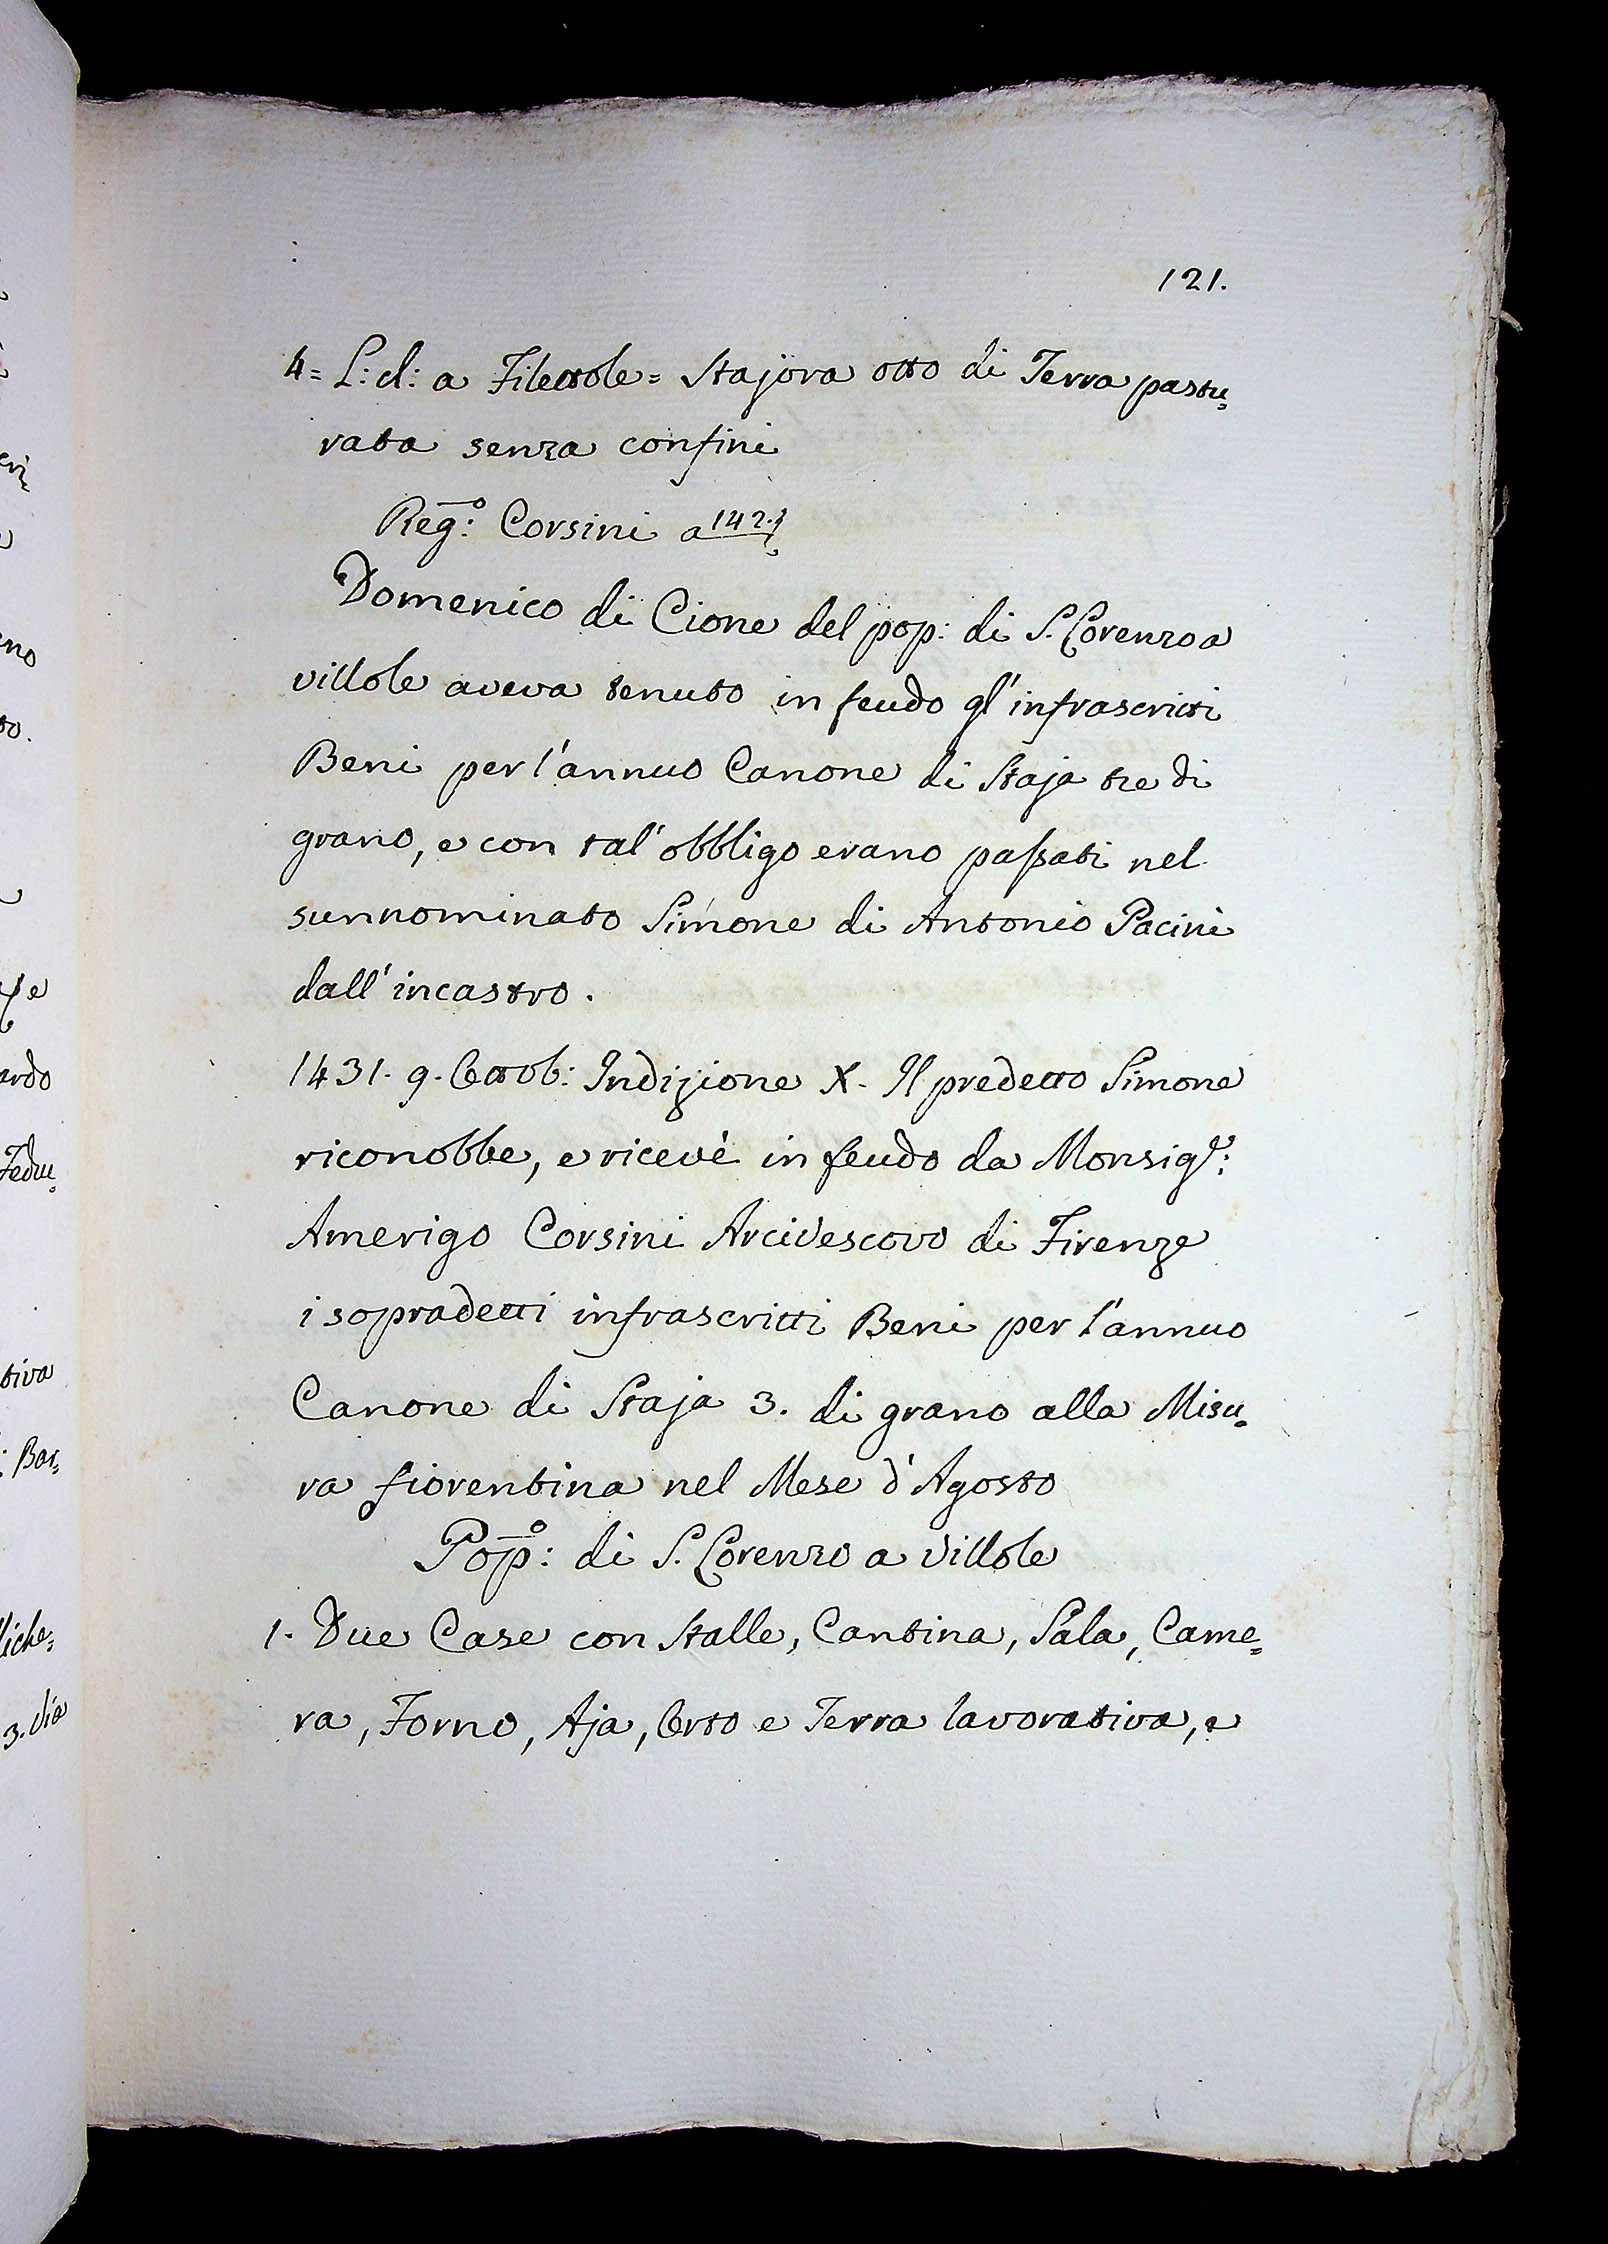 121.
4= L: d: a Filettole= Stajora otto di Terra pastu=
rata senza confini
Reg:º Corsini a 142.
Domenico di Cione del pop: di S. Lorenzo a
villole aveva tenuto in feudo gl'infrascritti
Beni per l'annuo Canone di Staja tre di
grano, e con tal'obbligo erano passati nel
sunnominato Simone di Antonio Pacini
dall'incastro.
1431. 9. Ottob: Indizione X. Il predetto Simone
riconobbe, e ricevè in feudo da Monsigr:
Amerigo Corsini Arcivescovo di Firenze
i sopradetti infrascritti Beni per l'annuo
Canone di Staja 3. di grano alla Misu=
ra fiorentina nel Mese d'Agosto
Pop:º di S. Lorenzo a Villole
1. Due Case con Stalle, Cantina, Sala, Came=
ra, Forno, Aja, Orto e Terra lavorativa, e
ardo
tiva
: Bar=
3. Via